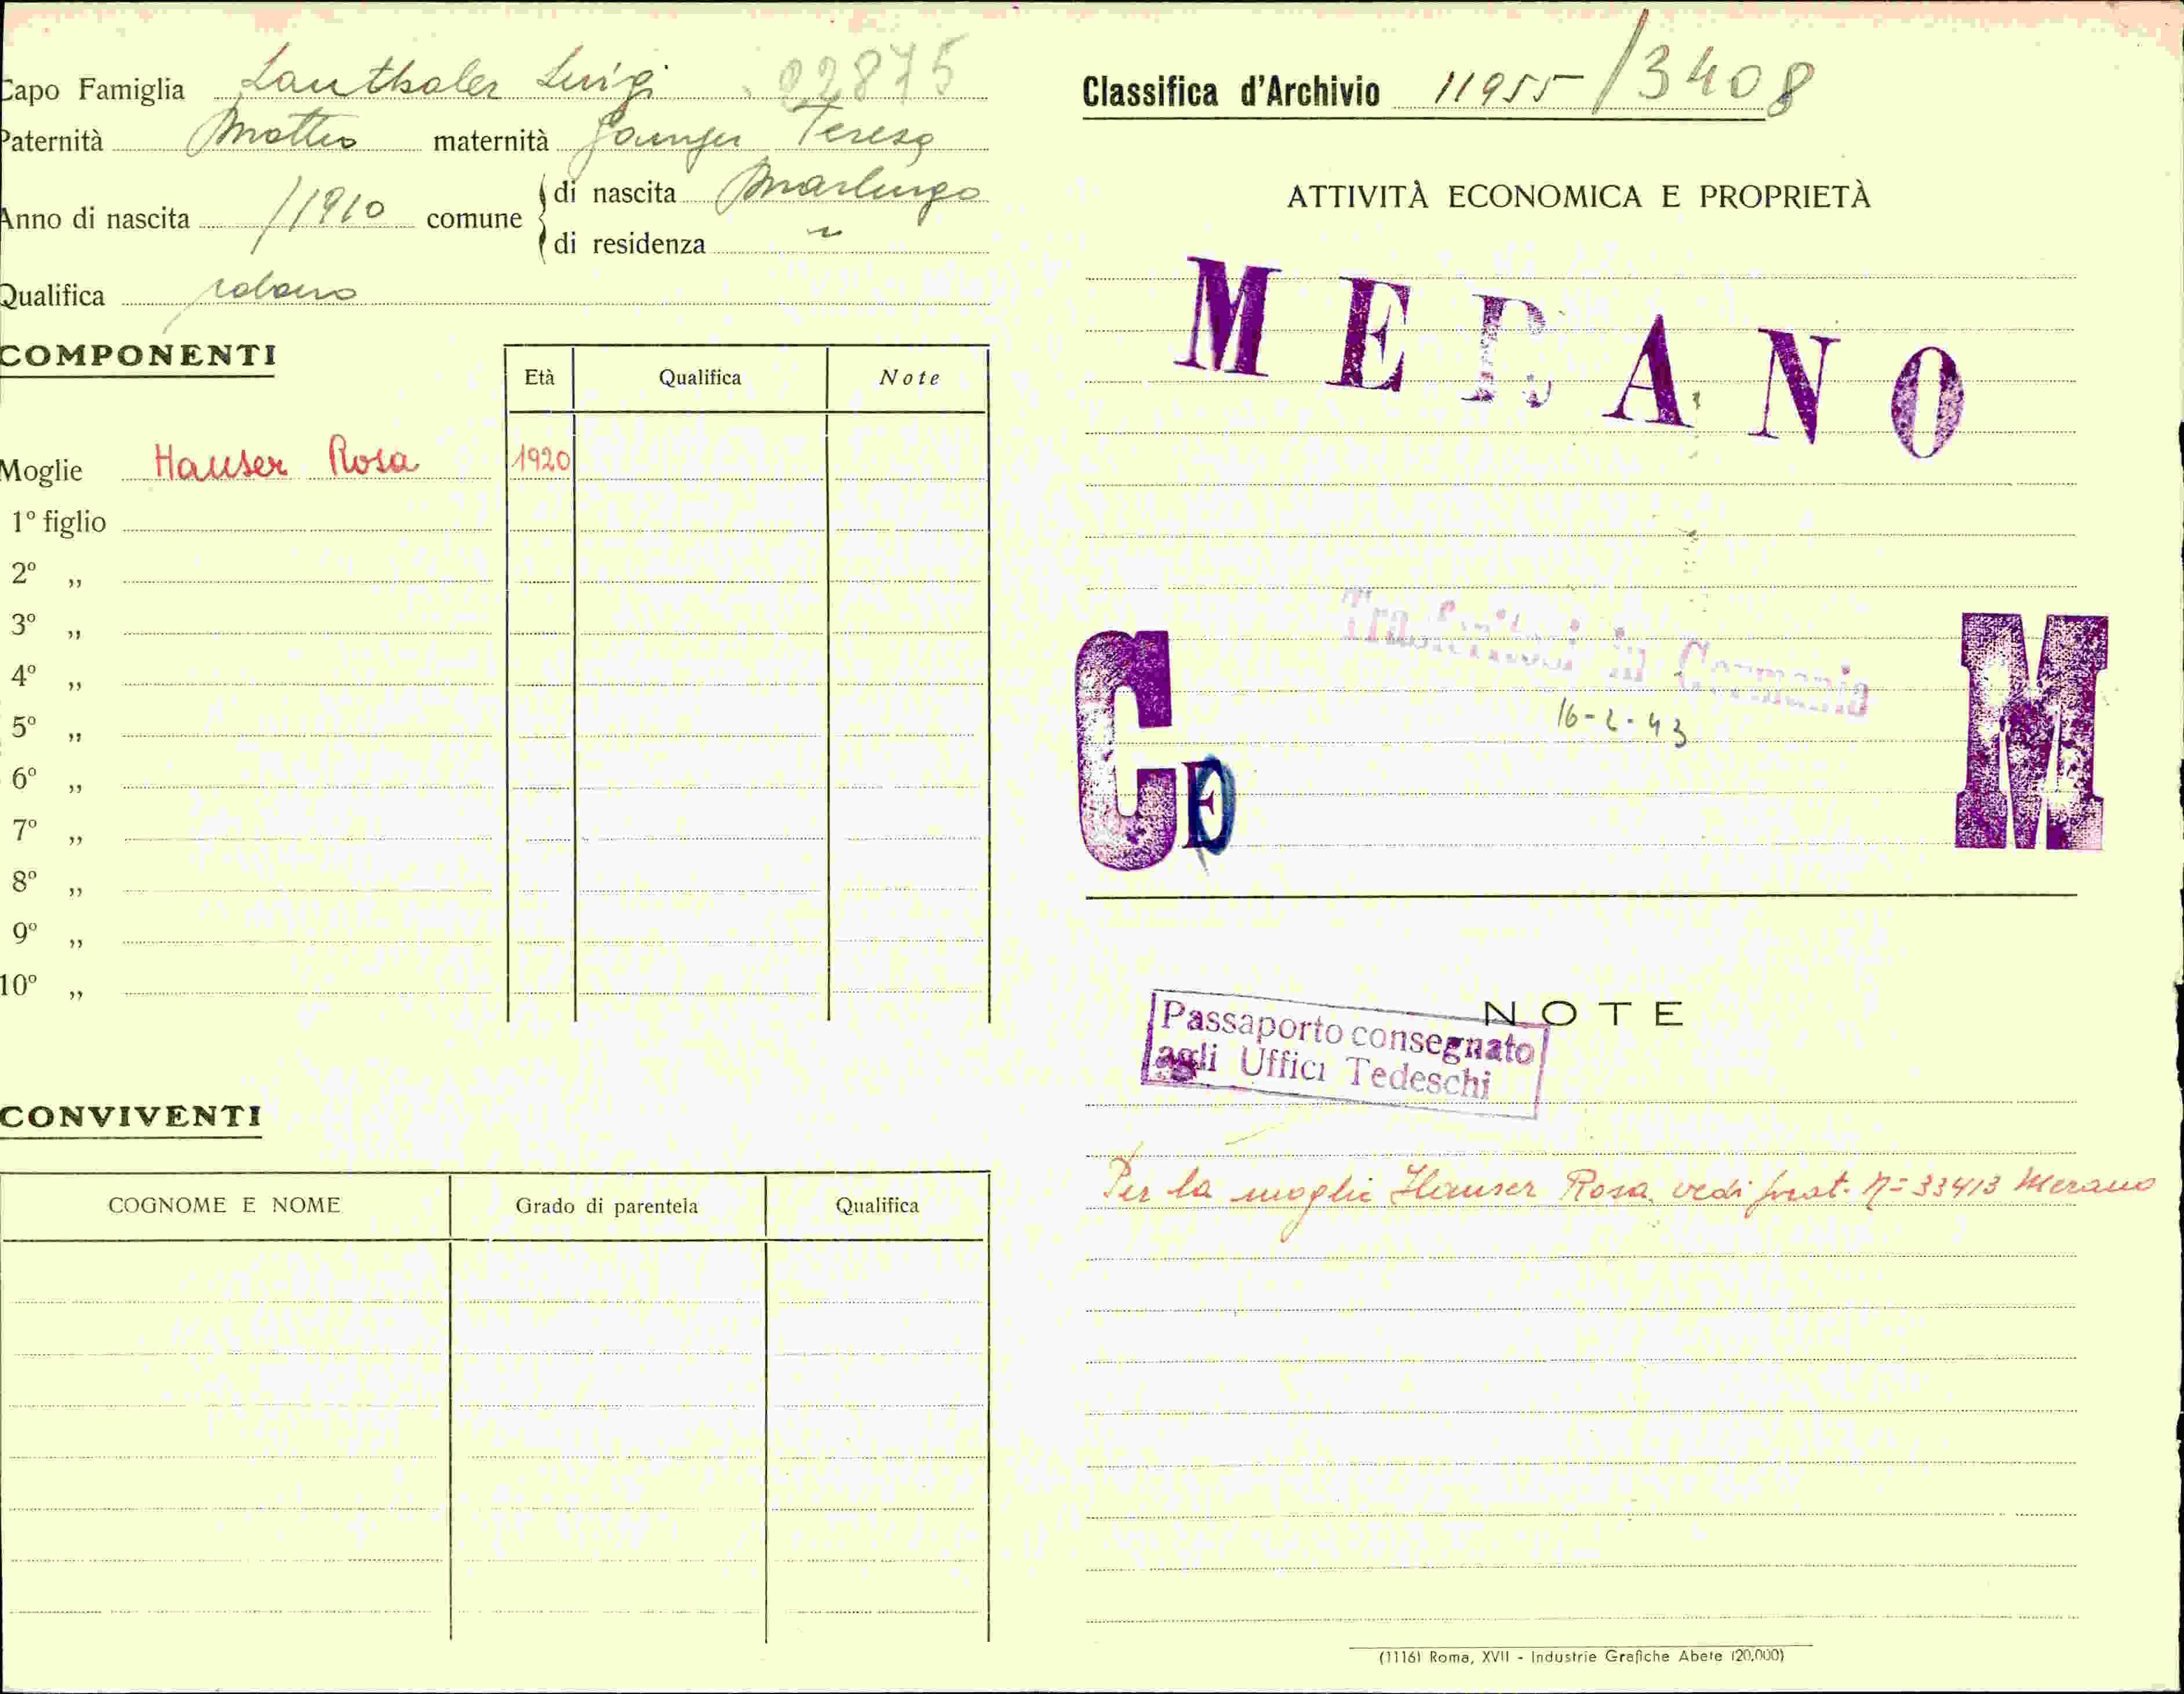 Capo Famiglia Lauthaler Luigi 02875
Paternità Matteo maternità Teresa
Anno di nascita /1910 comune di nascita Marlengo
di residenza "
Qualifica
COMPONENTI
Età Qualifica Note
Moglie Hauser Rosa 1920
1º figlio
2º „
3º „
4º „
5º „
6º „
7º „
8º „
9º „
10º „
CONVIVENTI
COGNOME E NOME Grado di parentela Qualifica
Classifica d'Archivio 11955/3408
ATTIVITÀ ECONOMICA E PROPRIETÀ
MERANO
Trasferitosi in Germania
16-2-43
C E M
NOTE
Passaporto consegnato
agli Uffici Tedeschi
Per la moglie Hauser Rosa vedi prat. n= 33413 Merano
(1116) Roma, XVII - Industrie Grafiche Abete (20.000)